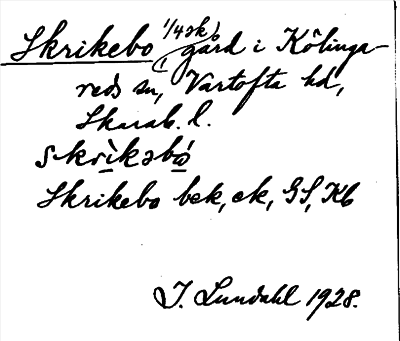 Skrikebo (1/4 sk) gård i Kölinga-
reds sn, Vartofta hd,
Skarab. l.
skrìkəbó
Skrikebo bek, ek, GS, Kb
I. Lundahl 1928.